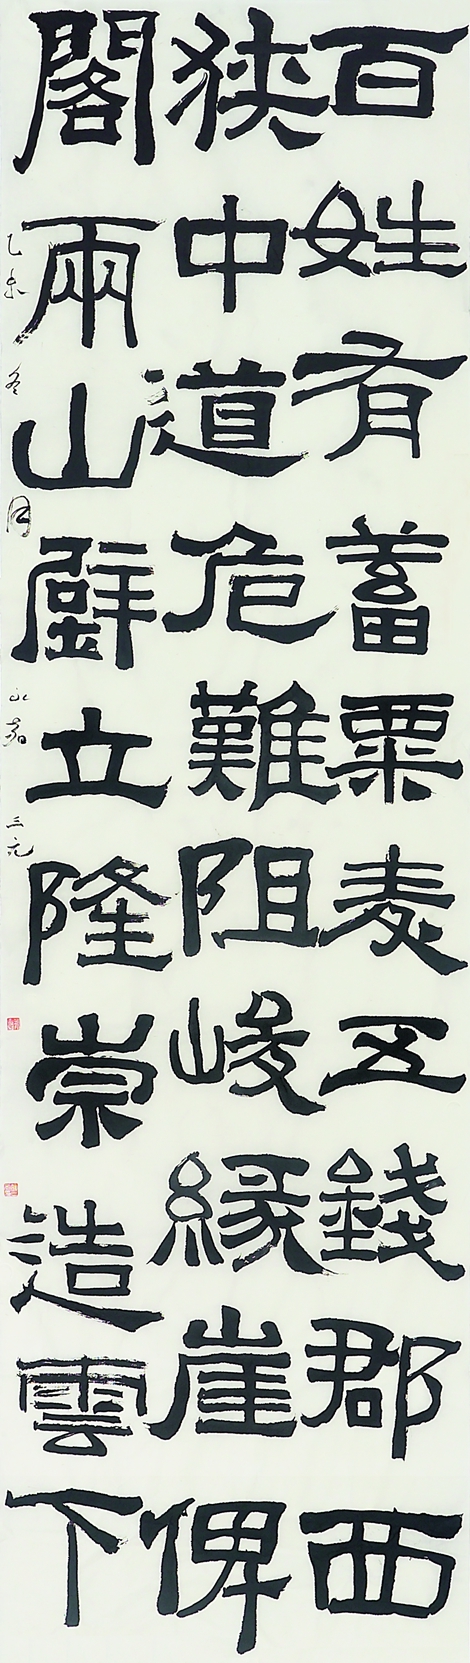 百姓有蓄粟麦五錢郡西
狭中道危難阻峻緣崖俾
閣兩山壁立隆崇造雲下
乙未冬月 永嘉 三元